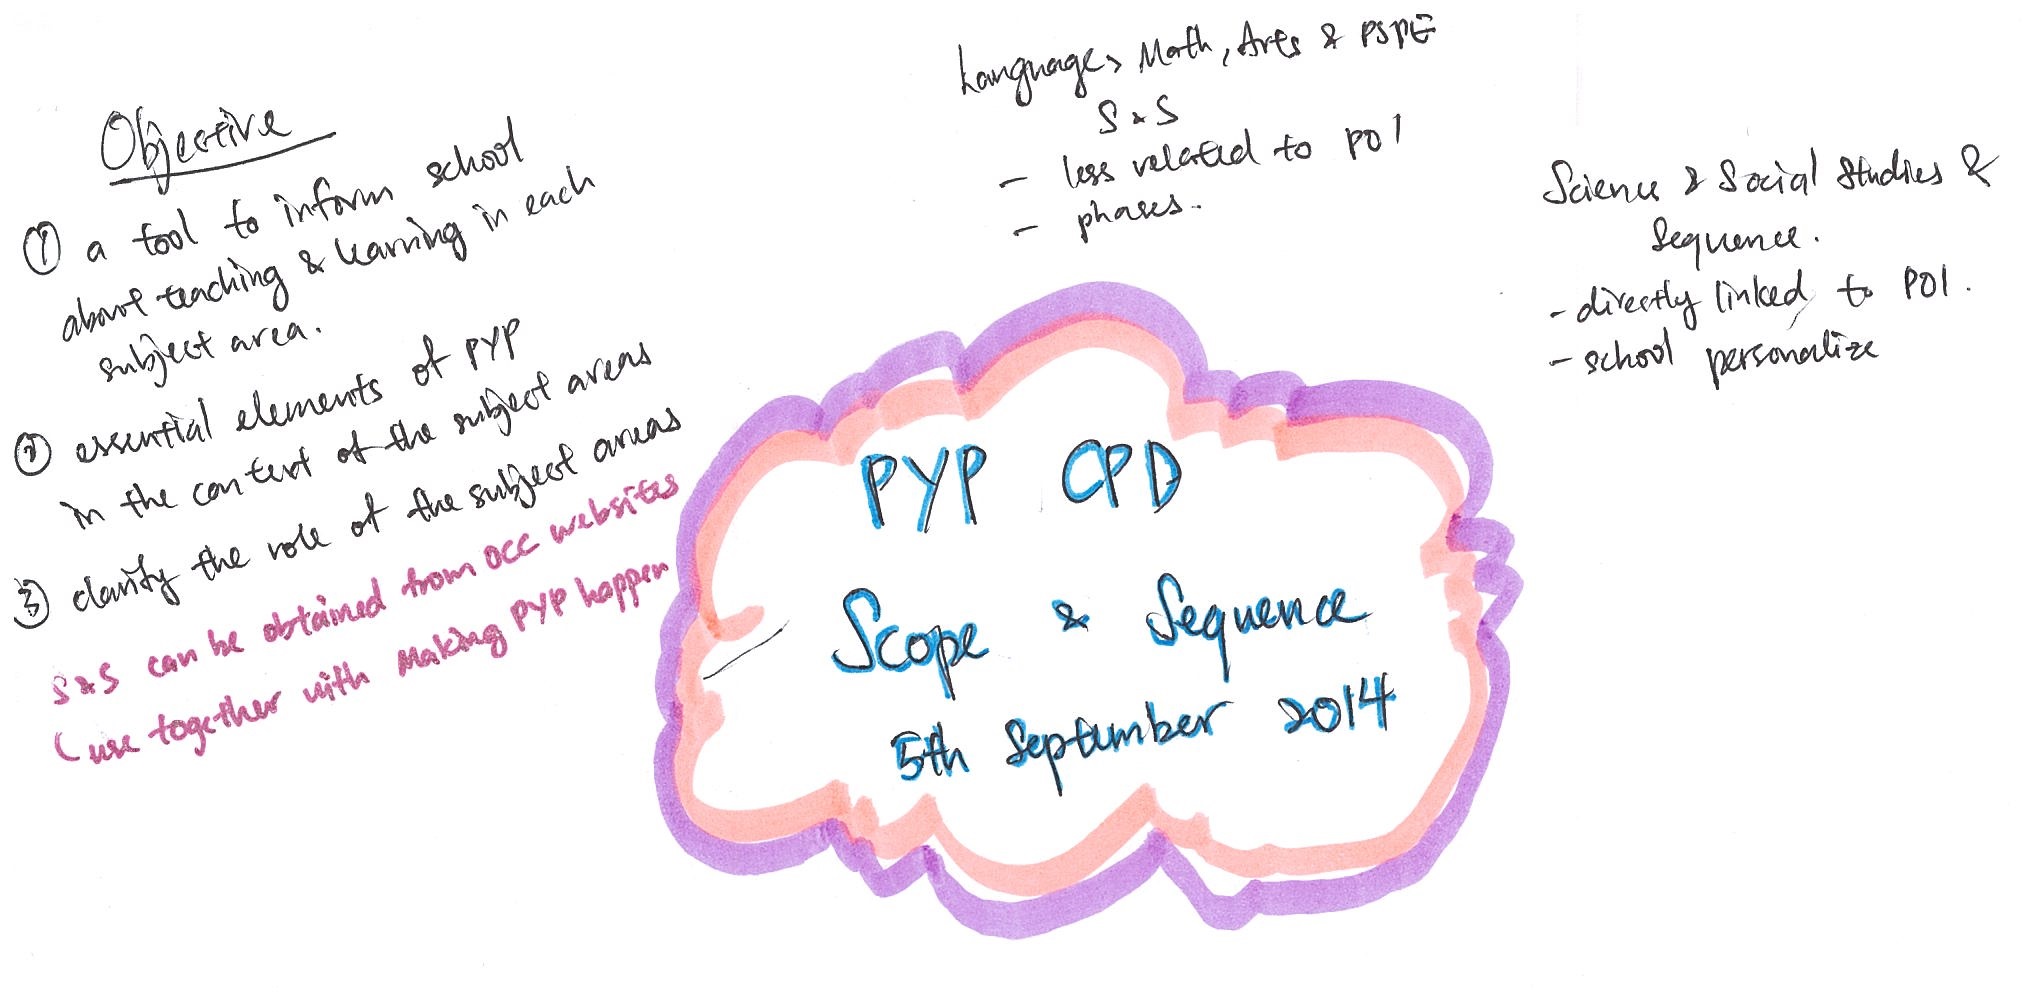 Objective
① a tool to inform school
about teaching & learning in each
subject area.
② essential elements of PYP
in the context of the subject areas
③ clarify the role of the subject areas
S&S can be obtained from OCC websites
(use together with Making PYP happen
Language, Math, Arts & PSPE
S&S
- less related to POI
- phases.
Science & Social Studies &
Sequence.
- directly linked to POI.
- school personalize
PYP CPD
Scope & Sequence
5th September 2014